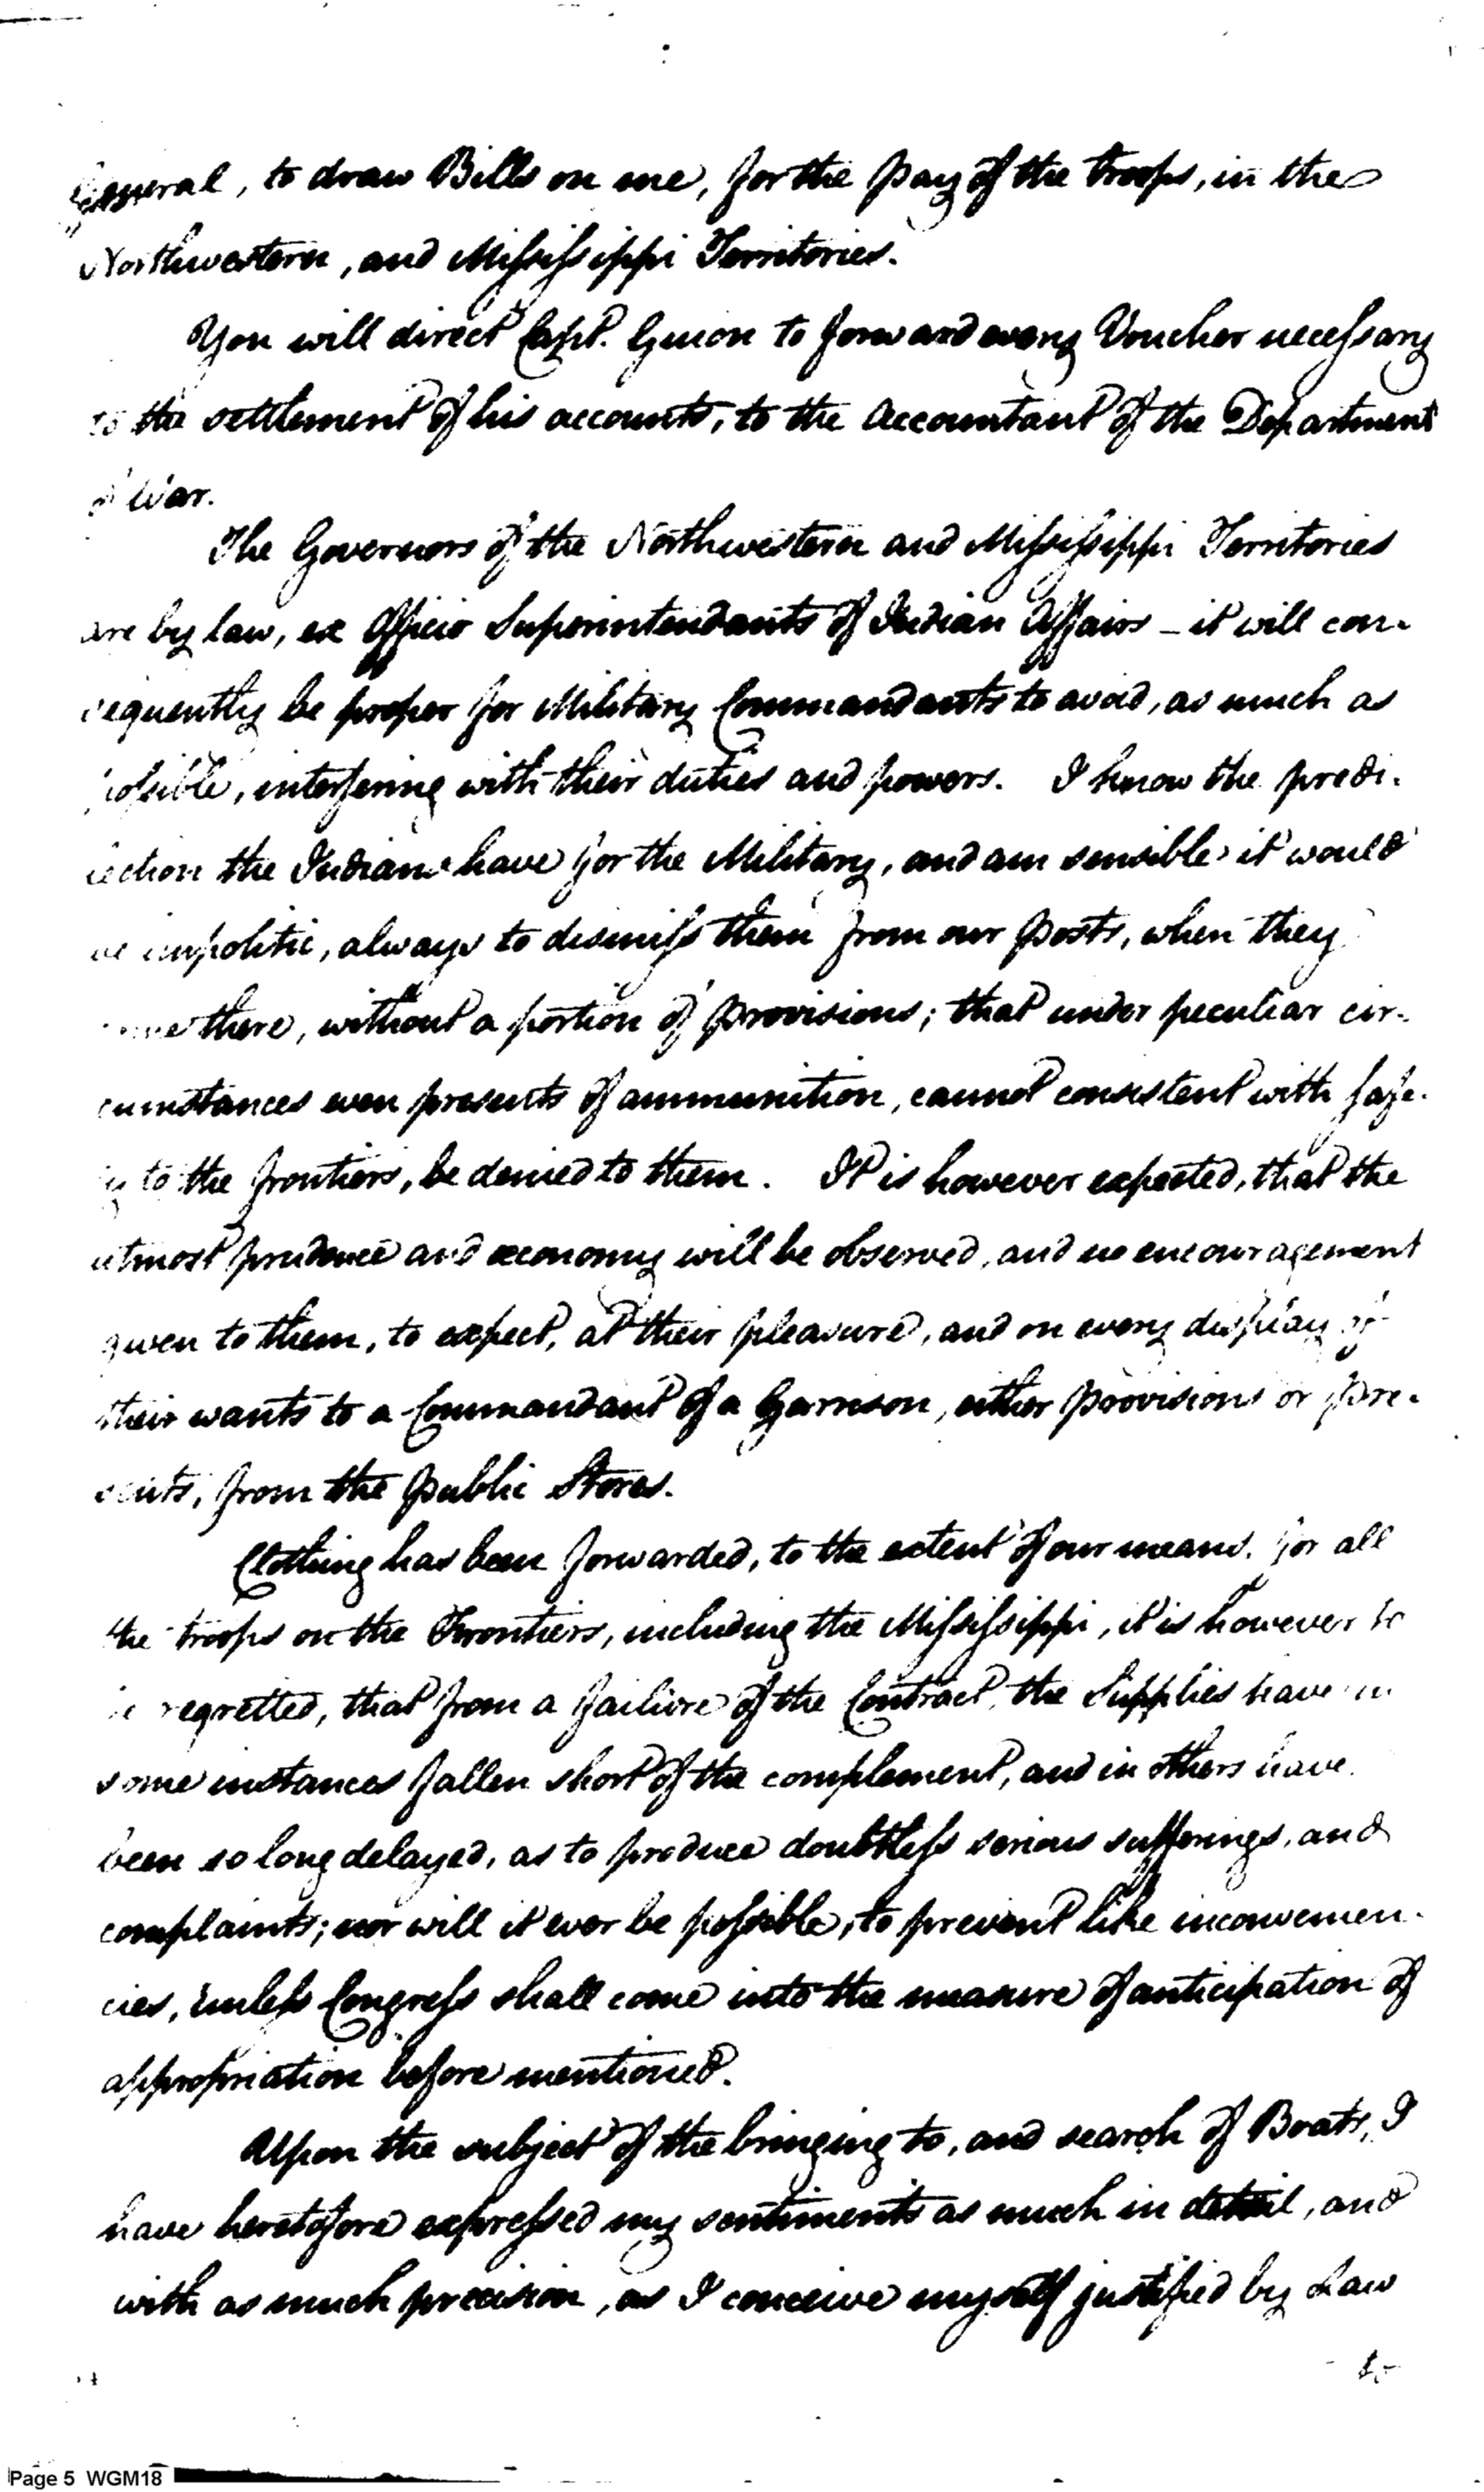 General, to draw Bills on me, for the pay of the troops, in the
Northwestern, and Mississippi Territories.
You will direct Capt. Guion to forward every Voucher necessary
to the settlement of his accounts, to the Accountant of the Department
of War.
The Governors of the Northwestern and Mississippi Territories
are by law, ex Officio Superintendants of Indian Affairs - it will con-
sequently be proper for Military Commandants to avoid, as much as
possible, interfering with their duties and powers. I know the predi-
lection the Indians have for the Military, and am sensible it would
be impolitic, always to dismiss them from our posts, when they
come there, without a portion of provisions; that under peculiar cir-
cumstances even presents of ammunition, cannot consistent with safe-
ty to the frontiers, be denied to them. It is however expected, that the
utmost prudence and oeconomy will be observed, and no encouragement
given to them, to expect, at their pleasure, and on every display of
their wants to a Commandant of a Garrison, either provisions or pre-
sents, from the public Stores.
Clothing has been forwarded, to the extent of our means, for all
the troops on the Frontiers, including the Mississippi, it is however to
be regretted, that from a failure of the Contract, the Supplies have in
some instances fallen short of the complement, and in others have
been so long delayed, as to produce doubtless serious sufferings, and
complaints; nor will it ever be possible, to prevent like inconvenien-
cies, unless Congress shall come into the measure of anticipation of
appropriation before mentioned.
Upon the subject of the bringing to, and search of Boats, I
have heretofore expressed my sentiments as much in detail, and
with as much precision, as I conceive myself justified by Law
to
Page 5 WGM18